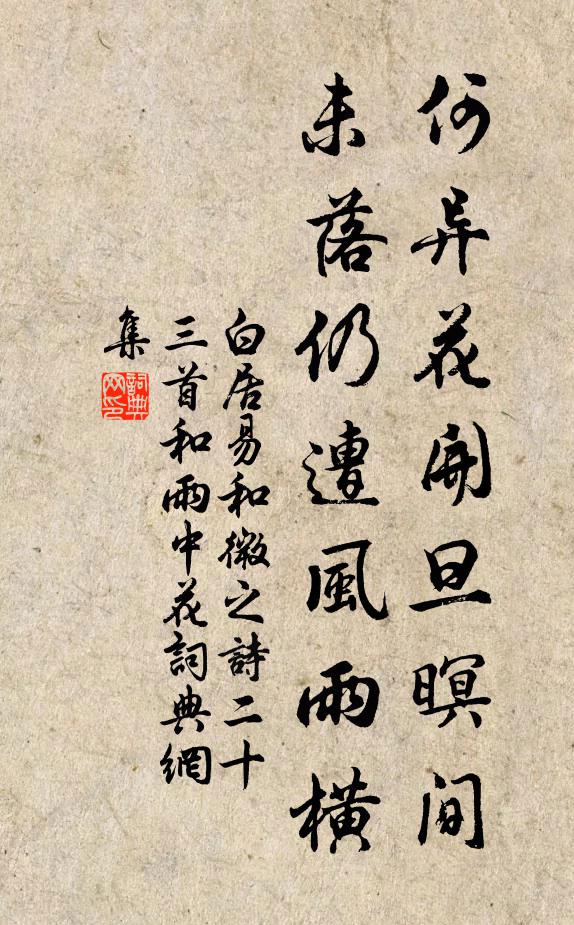 何异花開旦暝间
未落仍遭風雨横
白居易和微之詩二十
三首和雨中花詞典網
集
詞典
网印